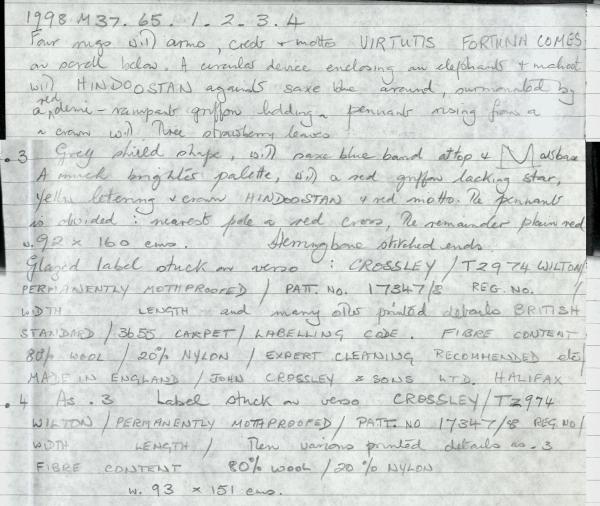 1998 M37. 65. 1. 2. 3. 4
Four rugs with arms, crest & motto VIRTUTIS FORTUNA COMES
on scroll below. A circular device enclosing an elephant & mahout
with HINDOOSTAN against saxe blue around, surmounted by
a red demi-rampant griffon holding a pennant rising from a
a crown with three strawberry leaves
.3 Grey shield shape, with saxe blue band at top & at base
A much brighter palette, with a red griffon lacking star,
yellow lettering & crown HINDOOSTAN & red motto. The pennant
is divided: nearest pole a red cross, the remainder plain red
w. 92 x 160 cms. Herringbone stitched ends.
Glazed label stuck on verso : CROSSLEY / T2974 WILTON/
PERMANENTLY MOTHPROOFED / PATT. NO. 17347/8 REG. NO. /
WIDTH LENGTH and many other printed details BRITISH
STANDARD / 3655 CARPET / LABELLING CODE. FIBRE CONTENT
80% WOOL / 20% NYLON / EXPERT CLEANING RECOMMENDED etc/
MADE IN ENGLAND / JOHN CROSSLEY & SONS LTD. HALIFAX
.4 As .3 Label stuck on verso CROSSLEY / T2974
WILTON / PERMANENTLY MOTHPROOFED / PATT. NO 17347/8 REG NO/
WIDTH LENGTH / Then various printed details as .3
FIBRE CONTENT 80% WOOL / 20% NYLON
w. 93 x 151 cms.